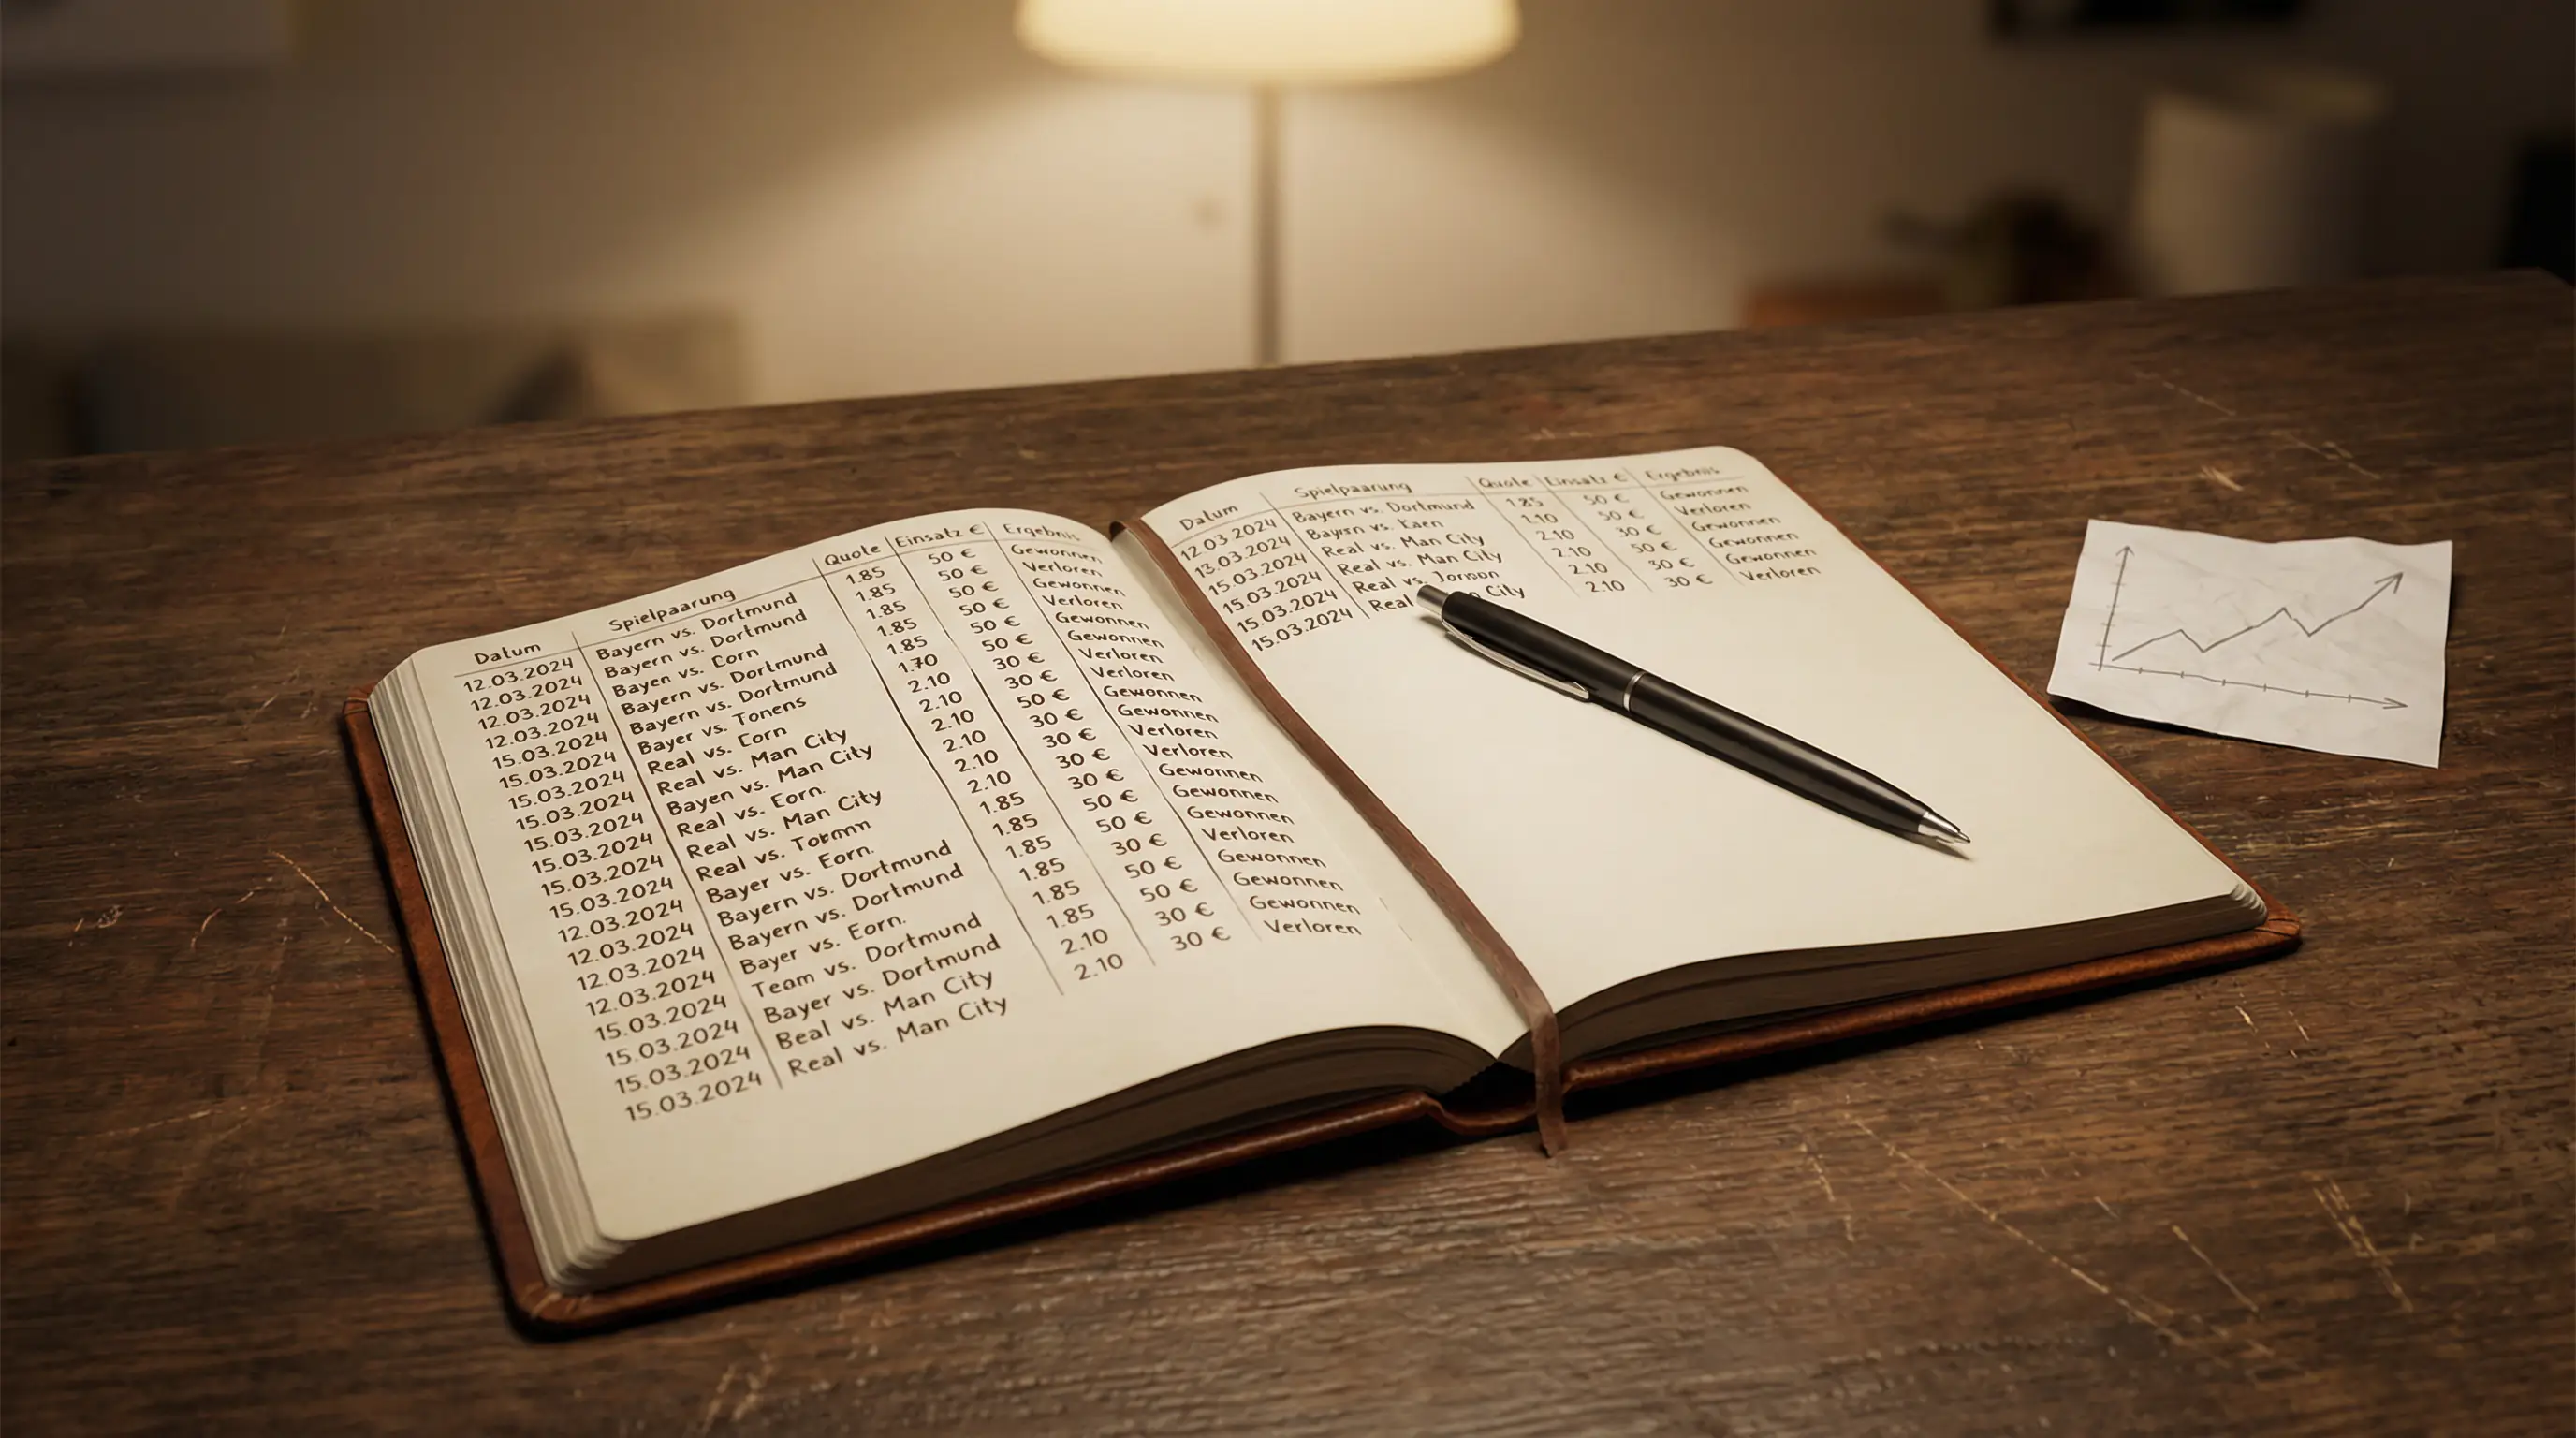 Datum Spielpaarung Quote Einsatz € Ergebnis
12.03.2024 Bayern vs. Dortmund 1.85 50 € Gewonnen
12.03.2024 Bayern vs. Dortmund 1.85 50 € Verloren
12.03.2024 Bayen vs. Corn 1.85 50 € Gewonnen
12.03.2024 Bayern vs. Dortmund 1.85 50 € Verloren
15.03.2024 Bayern vs. Dortmund 1.85 50 € Gewonnen
15.03.2024 Bayer vs. Tonens 1.70 50 € Gewonnen
15.03.2024 Real vs. Corn 2.10 30 € Verloren
15.03.2024 Real vs. Man City 2.10 30 € Verloren
15.03.2024 Bayen vs. Man City 2.10 50 € Gewonnen
15.03.2024 Real vs. Eorn. 2.10 30 € Gewonnen
15.03.2024 Real vs. Man City 2.10 30 € Verloren
15.03.2024 Real vs. 2.10 30 € Verloren
12.03.2024 Bayer vs. Eorn. 1.85 30 € Gewonnen
12.03.2024 Bayern vs. Dortmund 1.85 50 € Gewonnen
12.03.2024 Bayern vs. Dortmund 1.85 50 € Gewonnen
12.03.2024 Bayer vs. Eorn. 1.85 30 € Verloren
15.03.2024 Team vs. Dortmund 1.85 50 € Gewonnen
15.03.2024 Bayer vs. Dortmund 1.85 50 € Gewonnen
15.03.2024 Beal vs. Man City 2.10 30 € Gewonnen
15.03.2024 Real vs. Man City 2.10 30 € Verloren
Datum Spielpaarung Quote Einsatz € Ergebnis
12.03.2024 Bayern vs. Dortmund 1.85 50 € Gewonnen
13.03.2024 Bayern vs. Kaen 1.10 50 € Verloren
15.03.2024 Real vs. Man City 2.10 30 € Gewonnen
15.03.2024 Real vs. Man City 2.10 50 € Gewonnen
15.03.2024 Real vs. 2.10 30 € Gewonnen
15.03.2024 Real City 2.10 30 € Verloren